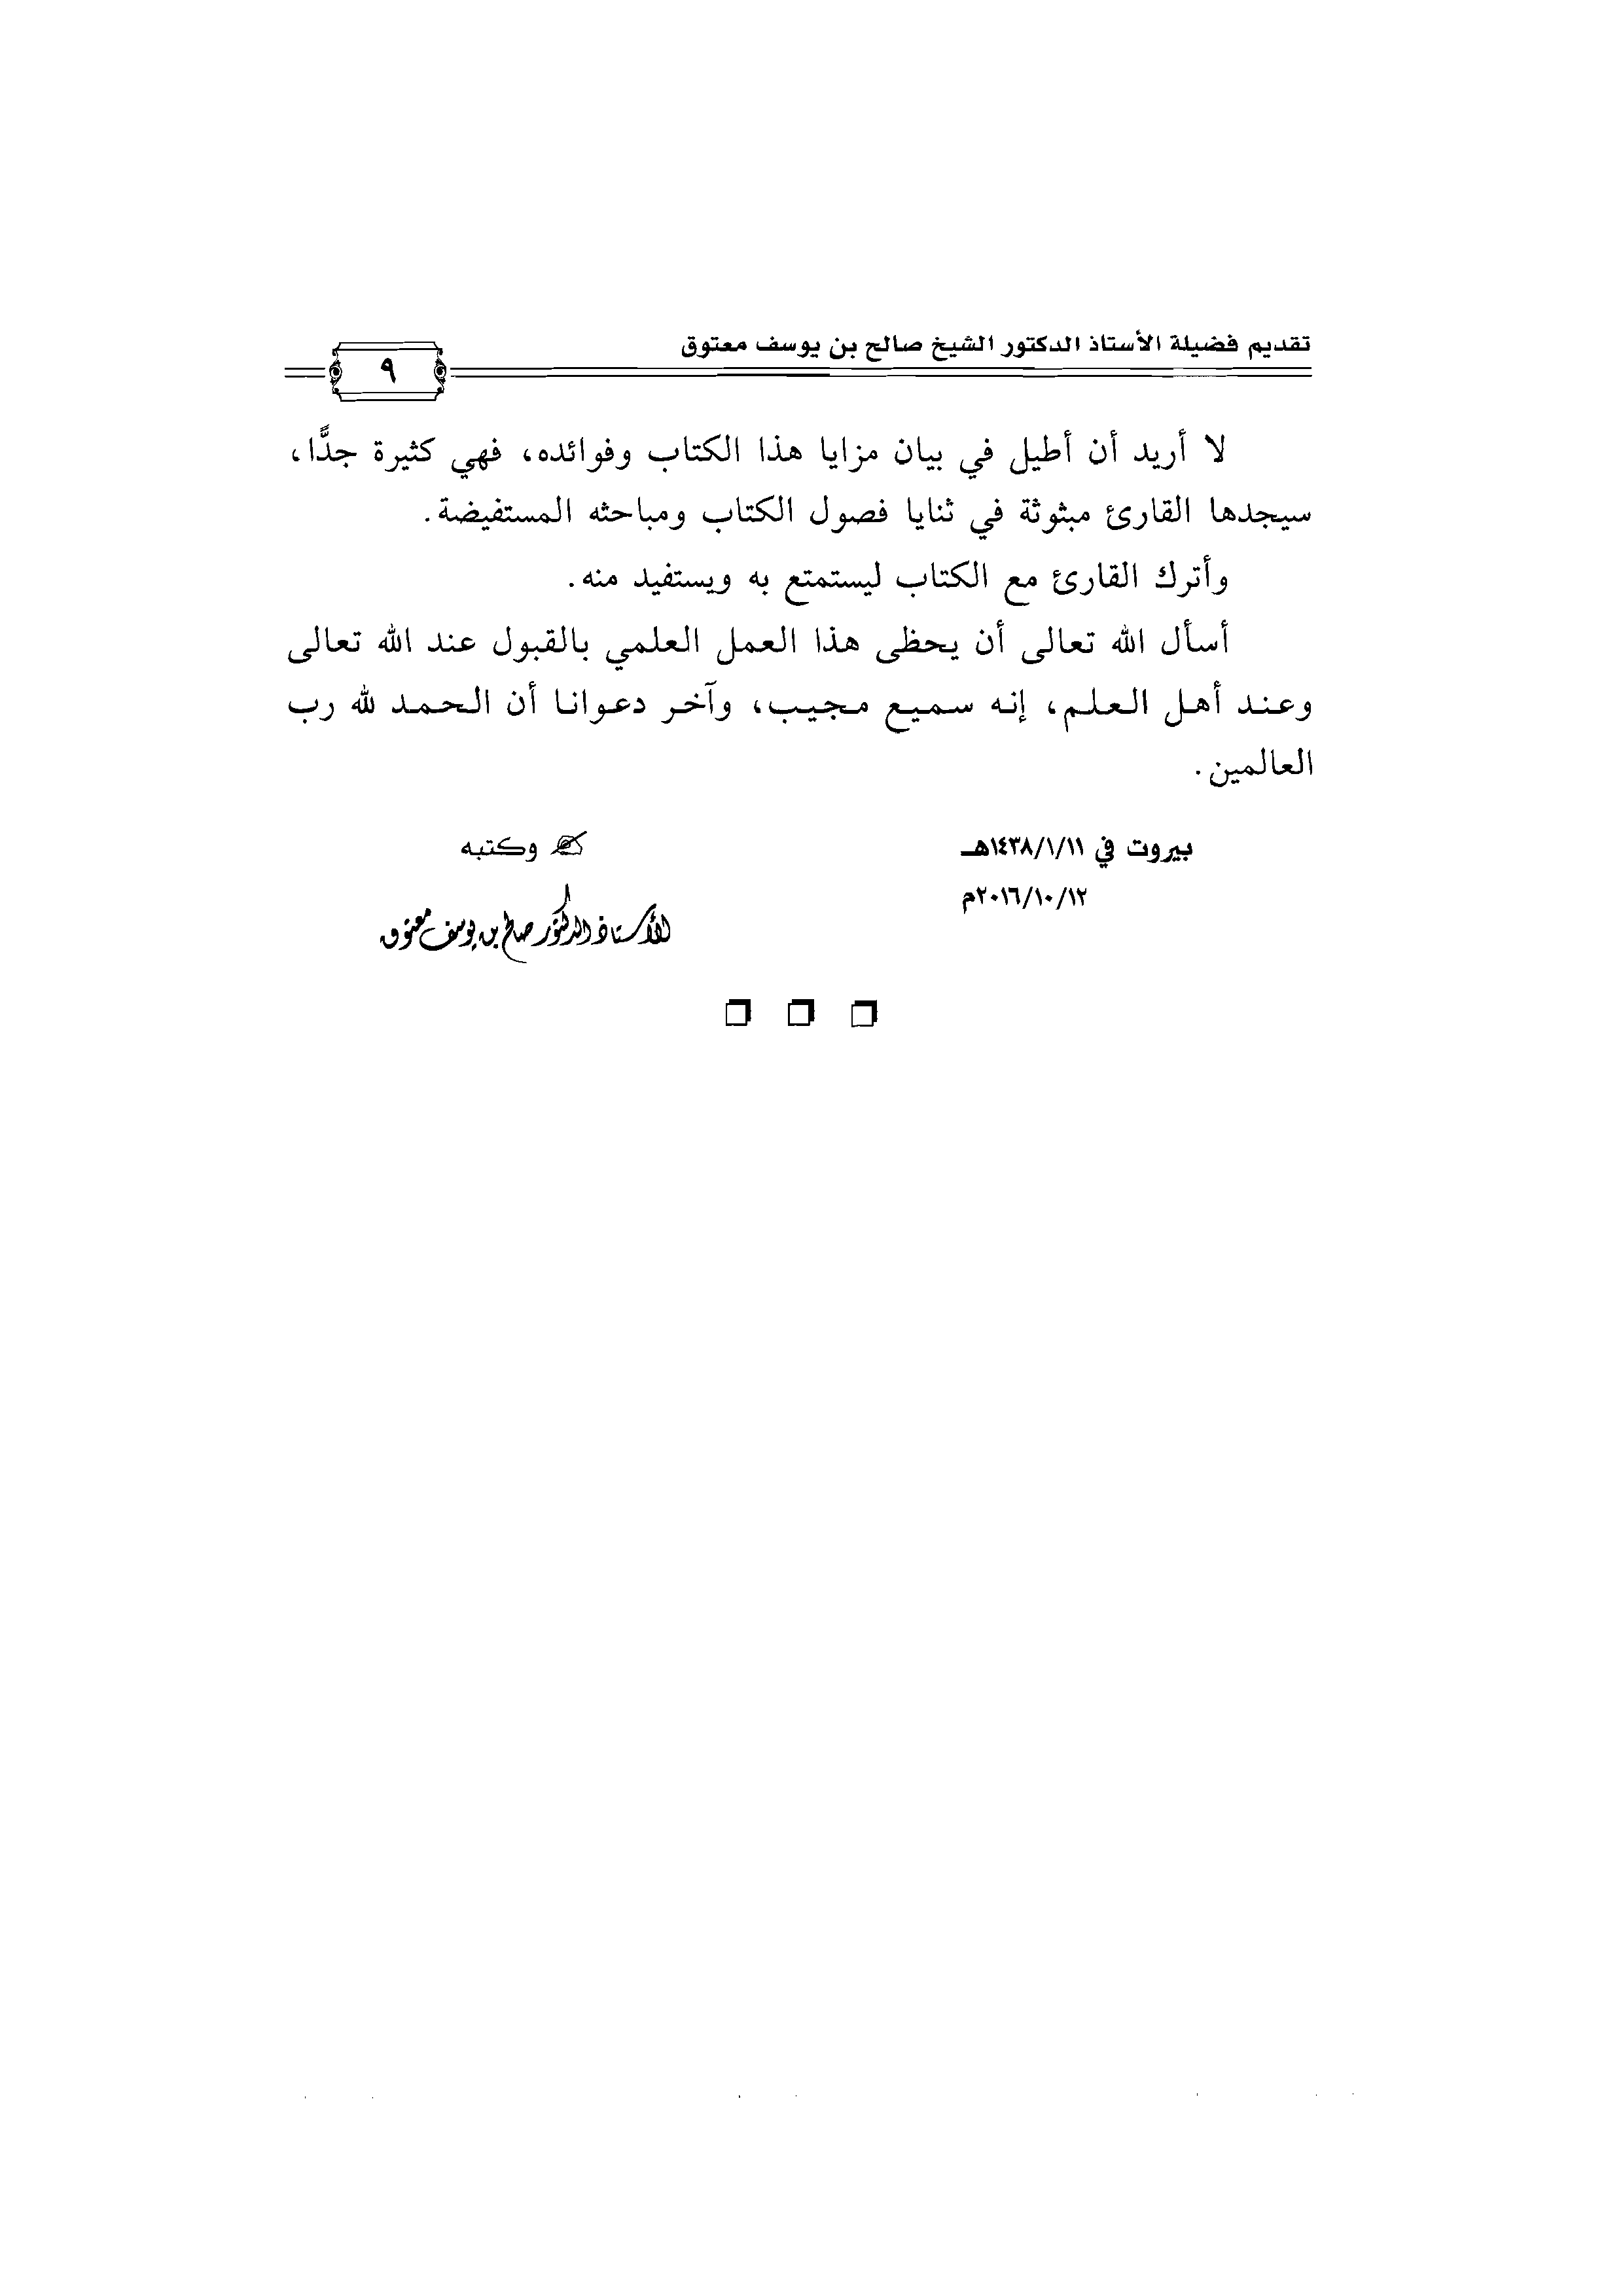 تقديم فضيلة الأستاذ الدكتور الشيخ صالح بن يوسف معتوق
٩
لا أريد أن أطيل في بيان مزايا هذا الكتاب وفوائده، فهي كثيرة جدًّا،
سيجدها القارئ مبثوثة في ثنايا فصول الكتاب ومباحثه المستفيضة.
وأترك القارئ مع الكتاب ليستمتع به ويستفيد منه.
أسأل الله تعالى أن يحظى هذا العمل العلمي بالقبول عند الله تعالى
وعند أهل العلم، إنه سميع مجيب، وآخر دعوانا أن الحمد لله رب
العالمين.
بيروت في ١٤٣٨/١/١١هـ
٢٠١٦/١٠/١٢م
وكتبه
الأستاذ الدكتور صالح بن يوسف معتوق